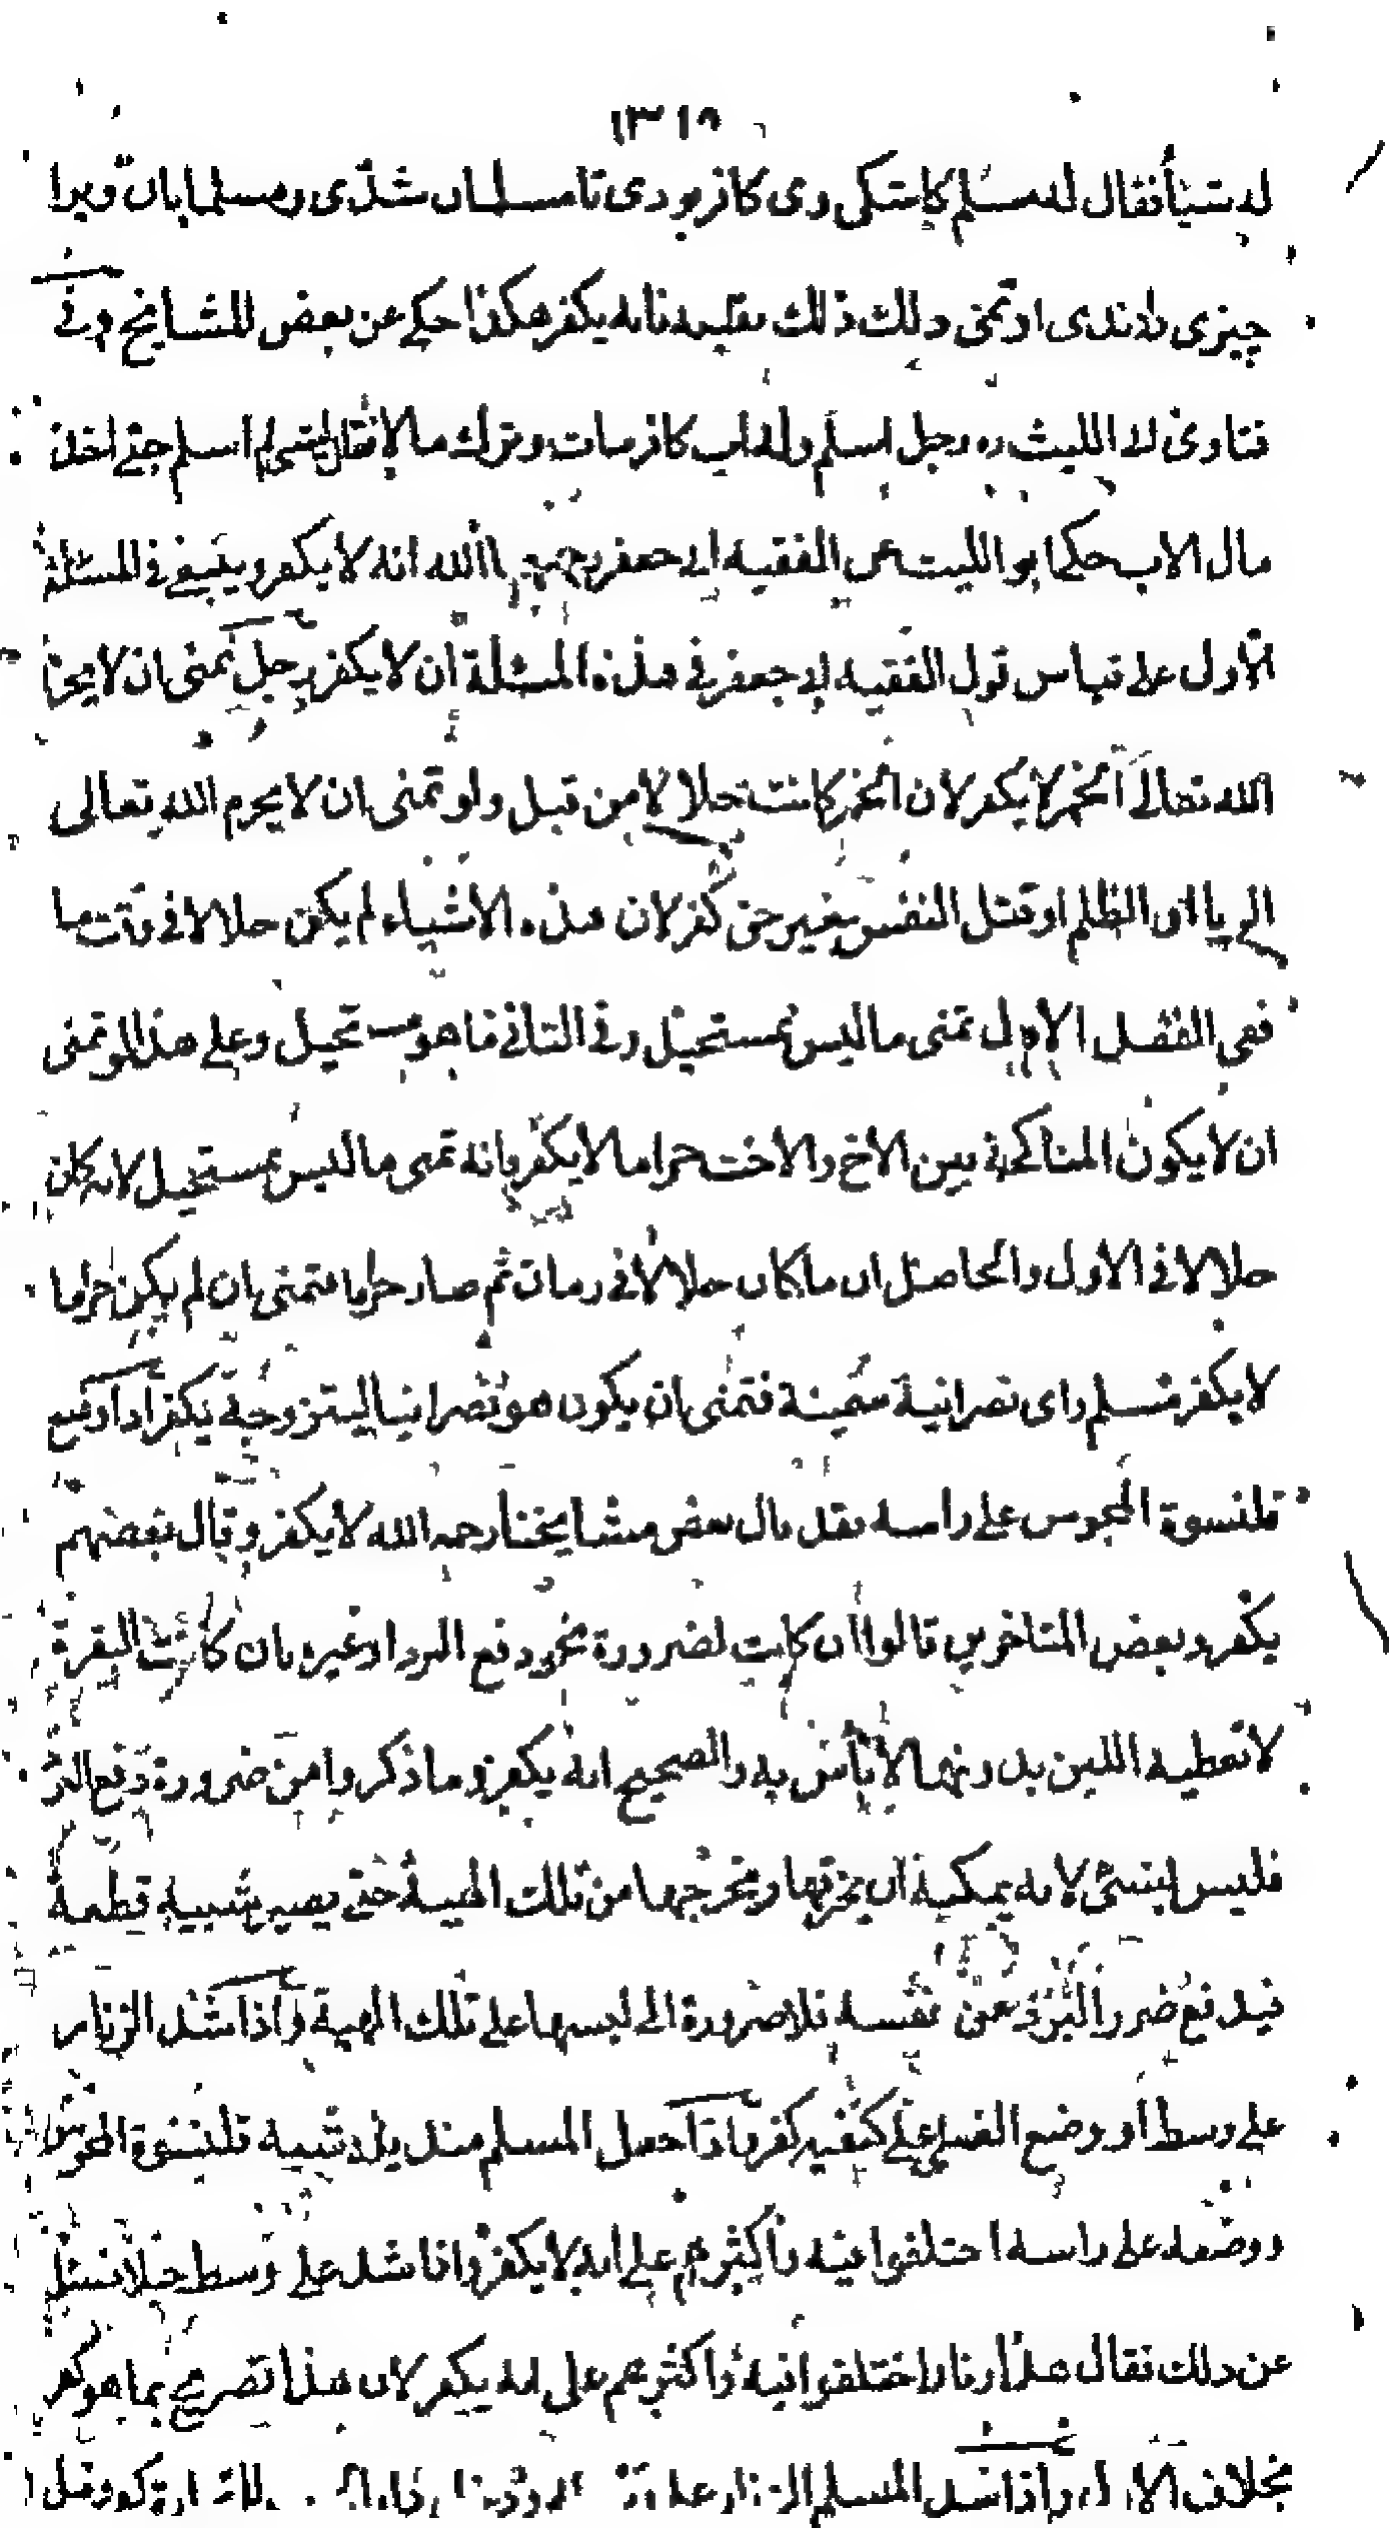 ١٣١٩
له شيئا فقال له مسلم كاشكى وى كافر بودى تا مسلمان شدى ومسلمانان ويرا
چيزى دادندى او تمنى ذلك بقلبه فانه يكفر هكذا حكى عن بعض المشايخ وفى
فتاوى ابى الليث ره رجل اسلم وله اب كافر مات وترك مالا فقال ليتنى لم اسلم حتى اخذت
مال الاب حكى ابو الليث عن الفقيه ابى جعفر رحمهما الله انه لا يكفر وينبغى فى المسئلة
الاول على قياس قول الفقيه ابى جعفر فى هذه المسئلة ان لا يكفر رجل تمنى ان لا يحرم
الله تعالى الخمر لا يكفر لان الخمر كانت حلالا من قبل ولو تمنى ان لا يحرم الله تعالى
الربا او الظلم او قتل النفس بغير حق كفر لان هذه الاشياء لم يكن حلالا فى وقت ما
ففى الفصل الاول تمنى ما ليس بمستحيل وفى الثانى ما هو مستحيل وعلى هذا لو تمنى
ان لا يكون المناكحة بين الاخ والاخت حراما لا يكفر بانه تمنى ما ليس بمستحيل لانه كان
حلالا فى الاول والحاصل ان ما كان حلالا فى زمان ثم صار حراما فتمنى ان لم يكن حراما
لا يكفر مسلم راى نصرانية سمينة فتمنى ان يكون هو نصرانيا ليتزوجها يكفر اذا وضع
قلنسوة المجوس على راسه فقد قال بعض مشايخنا رحمه الله لا يكفر وقال بعضهم
يكفر وبعض المتاخرين قالوا ان كانت لضرورة نحو دفع البرد او غيره بان كانت البقرة
لا تعطيه اللبن بدونها لا بأس به والصحيح انه يكفر وما ذكروا من ضرورة دفع البرد
فليس بشئ لانه يمكنه ان يخرقها ويخرجها من تلك الهيئة حتى يصير شبيه قطعة
فيدفع ضرر البرد عن نفسه فلا ضرورة الى لبسها على تلك الهيئة واذا شد الزنار
على وسط او وضع الغسلى على كتفيه كفر واذا جعل المسلم منديله شبيه قلنسوة المجوس
ووضعه على راسه اختلفوا فيه واكثرهم على انه لا يكفر واذا شد على وسط حبلا فسئل
عن ذلك فقال هذا زنار اختلفوا فيه واكثرهم على انه يكفر لان هذا تصريح بما هو كفر
بخلاف الاول واذا شد المسلم الزنار